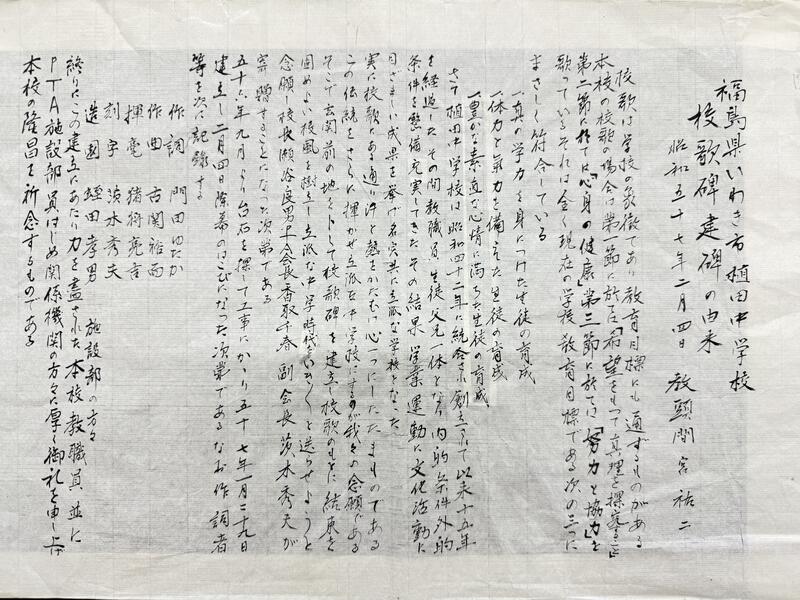 福島県いわき市植田中学校
校歌碑建碑の由来
昭和五十七年二月四日 教頭間宮祐二
校歌は学校の象徴であり教育目標にも通ずるものがある
本校の校歌の場合は第一節に於て「希望をもって真理を探究」
第二節に於ては「心身の健康」第三節に於ては「努力と協力」を
歌っているそれは全く現在の学校教育目標である次の三つに
まさしく符合している
一、真の学力を身につけた生徒の育成
一、体力と気力を備えた生徒の育成
一、豊かな素直な心情に満ちた生徒の育成
さて植田中学校は昭和四十二年に統合され創立されて以来十五年
を経過したその間教職員生徒父兄一体となり内的条件外的
条件を整備充実してきたその結果学業運動に文化活動に
目ざましい成果を挙げ名実共に立派な学校となった
実に校歌にある通り汗と熱をかたむけ心一つにしたたまものである
この伝統をさらに輝かせ立派な中学校にするのが我々の念願である
そこで玄関前の地を卜して校歌碑を建立し校歌のもとに結束を
固めよい校風を樹立し立派な中学時代を送らせようと
念願し校長瀬谷良男PTA会長香取千春副会長茨木秀夫が
寄贈することになった次第である
五十六年九月より台石を採って工事にかかり五十七年一月二十九日
建立し二月四日除幕のはこびになった次第であるなお作詞者
等を次に記録する
作詞 門田ゆたか
作曲 古関裕而
揮毫 猪狩亮吉
刻字 茨木秀夫
造園 蛭田孝男 施設部の方々
終りにこの建立にあたり力を盡された本校教職員並に
PTA施設部員はじめ関係機関の方々に厚く御礼を申し上げ
本校の隆昌を祈念するものである